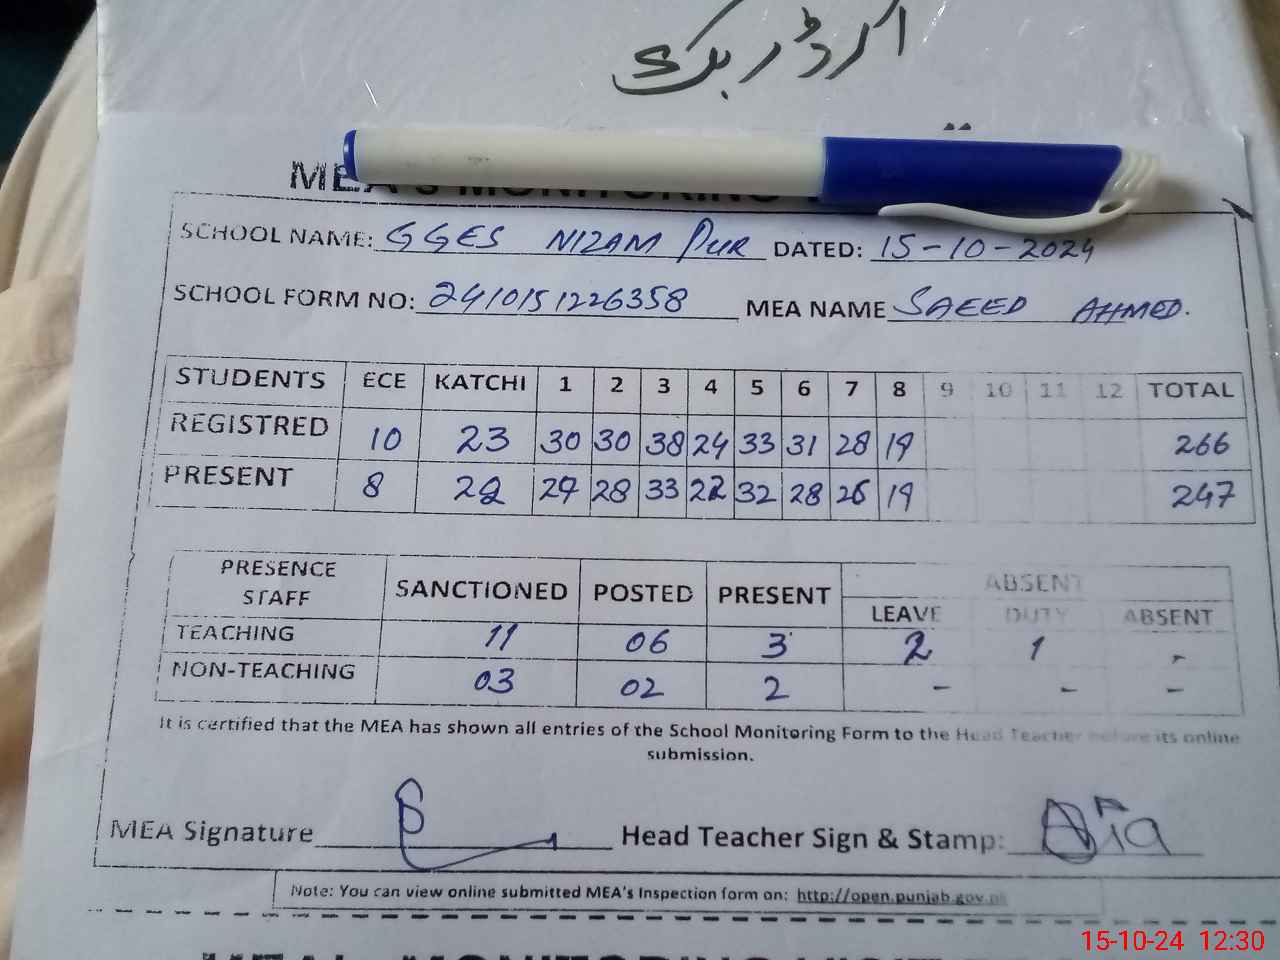 آرڈر بک
MEA's MONITORING
SCHOOL NAME: GGES NIZAM PUR DATED: 15-10-2024
SCHOOL FORM NO: 2410151226358 MEA NAME SAEED AHMED.
STUDENTS ECE KATCHI 1 2 3 4 5 6 7 8 9 10 11 12 TOTAL
REGISTRED 10 23 30 30 38 24 33 31 28 19 266
PRESENT 8 22 29 28 33 22 32 28 26 19 247
PRESENCE STAFF SANCTIONED POSTED PRESENT ABSENT
LEAVE DUTY ABSENT
TEACHING 11 06 3 2 1 -
NON-TEACHING 03 02 2 - - -
It is certified that the MEA has shown all entries of the School Monitoring Form to the Head Teacher before its online
submission.
MEA Signature Head Teacher Sign & Stamp:
Note: You can view online submitted MEA's Inspection form on: http://open.punjab.gov.pk
15-10-24 12:30